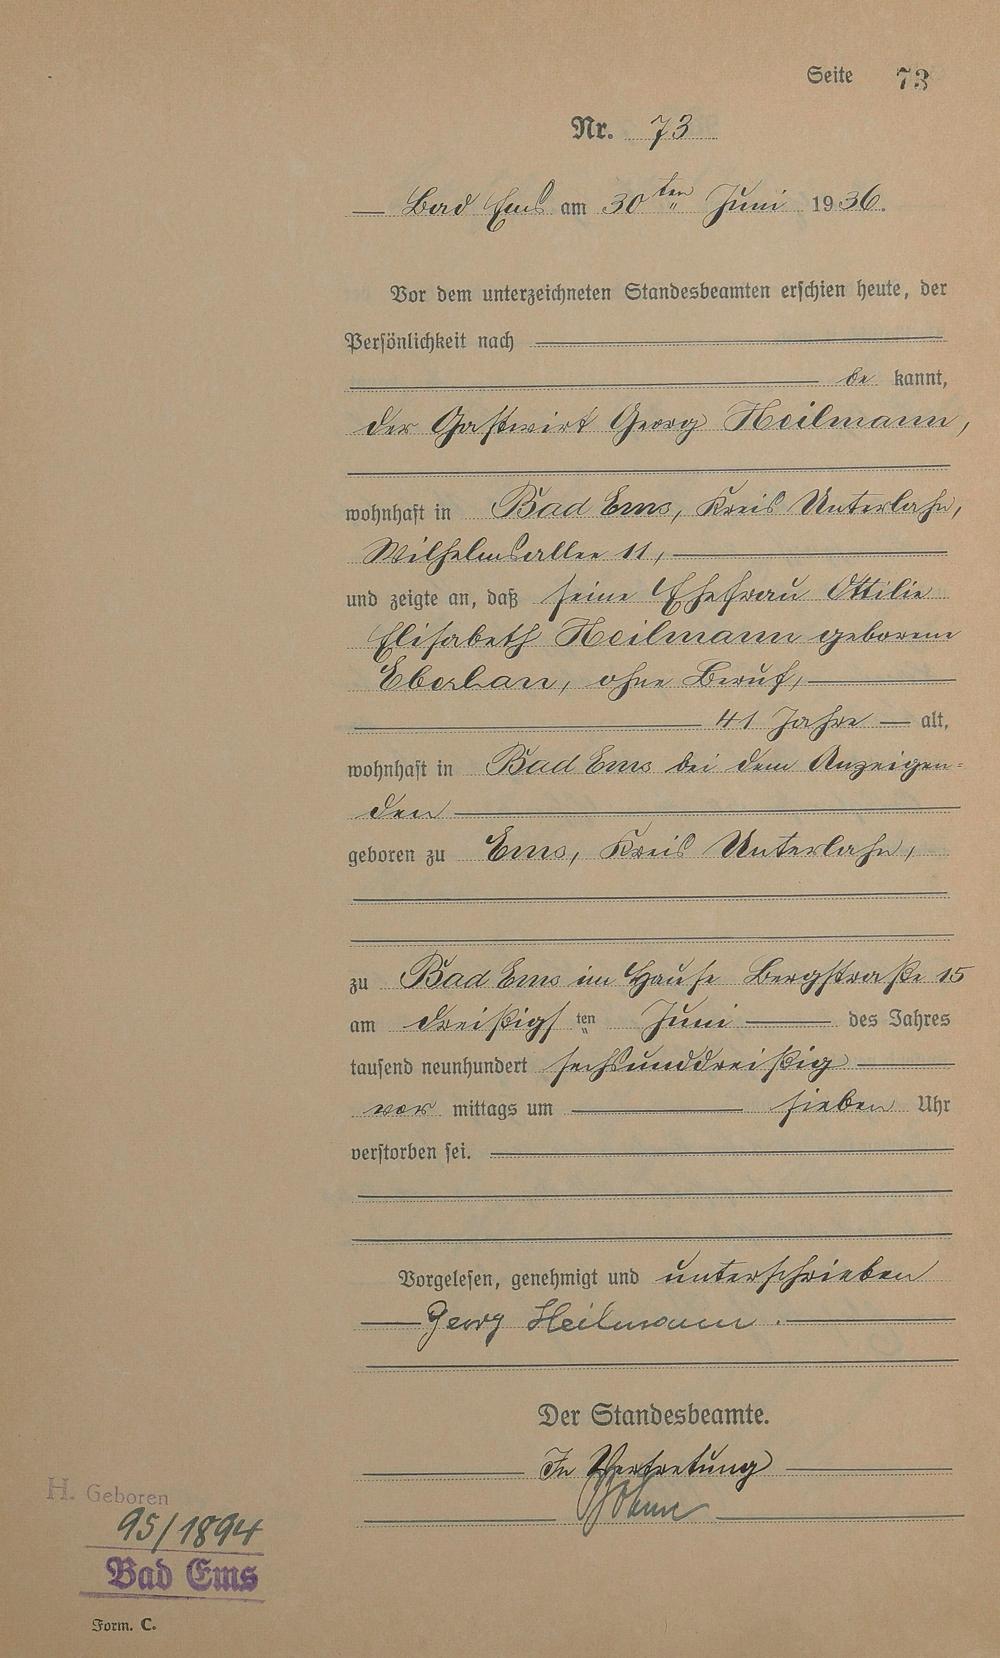 Seite 73
Nr. 73
Bad Ems am 30ten Juni 1936.
Vor dem unterzeichneten Standesbeamten erschien heute, der
Persönlichkeit nach
be kannt,
der Gastwirt Georg Heilmann,
wohnhaft in Bad Ems, Kreis Unterlahn,
Wilhelmsallee 11,
und zeigte an, daß seine Ehefrau Ottilie
Elisabeth Heilmann geborene
ohne Beruf,
41 Jahre alt,
wohnhaft in Bad Ems bei dem Anzeigen-
den
geboren zu Ems, Kreis Unterlahn,
zu Bad Ems im Hause Bergstraße 15
am dreißigs ten Juni des Jahres
tausend neunhundert sechsunddreißig
vor mittags um sieben Uhr
verstorben sei.
Vorgelesen, genehmigt und unterschrieben
Georg Heilmann.
Der Standesbeamte.
In Vertretung
H. Geboren
95/1894
Bad Ems
Form. C.